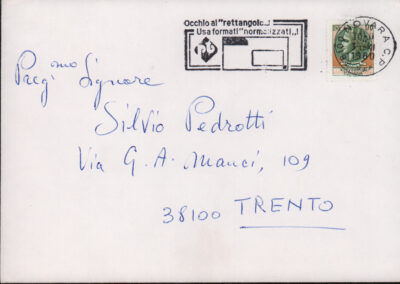 Occhio al "rettangolo..!
Usa formati "normalizzati..!
NOVARA C.P.
1980
Preg.mo Signore
Silvio Pedrotti
Via G. A. Manci, 109
38100 TRENTO